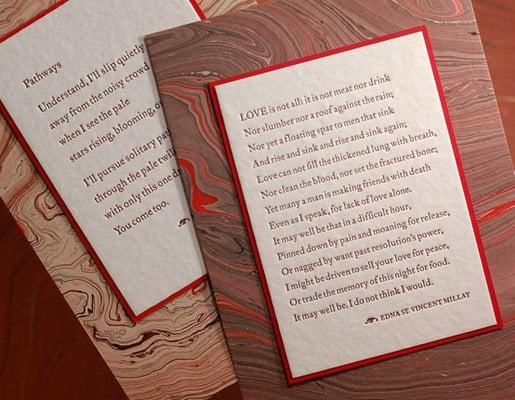 Pathways
Understand, I'll slip quietly
away from the noisy crowd
when I see the pale
stars rising, blooming,
I'll pursue solitary
through the pale
with only this one
You come too.
LOVE is not all: it is not meat nor drink
Nor slumber nor a roof against the rain;
Nor yet a floating spar to men that sink
And rise and sink and rise and sink again;
Love can not fill the thickened lung with breath,
Nor clean the blood, nor set the fractured bone;
Yet many a man is making friends with death
Even as I speak, for lack of love alone.
It may well be that in a difficult hour,
Pinned down by pain and moaning for release,
Or nagged by want past resolution's power,
I might be driven to sell your love for peace,
Or trade the memory of this night for food.
It may well be. I do not think I would.
EDNA ST. VINCENT MILLAY